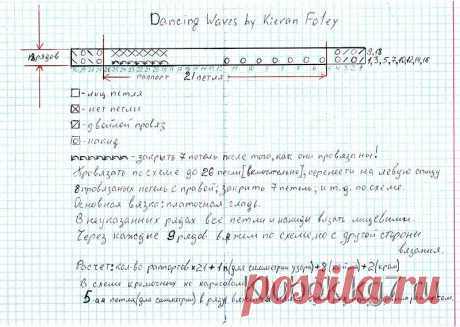 Dancing Waves by Kieran Foley
18 рядов
9,18
1,3,5,7,10,12,14,16
раппорт 21 петля
- лиц петля
- нет петли
- двойной провяз
- накид
- закрыть 7 петель после того, как они провязаны!
Провязать по схеме до 26 петли [включительно], перенести на левую спицу
8 провязанных петель с правой, закрыть 7 петель, и т.д. по схеме.
Основная вязка: платочная гладь.
В неуказанных рядах все петли и накиды вязать лицевыми.
Через каждые 9 рядов вяжем по схеме, но с другой стороны
вязания.
Расчет: кол-во раппортов × 21 + 1п (для симметрии узора) + 8 + 2 (края)
В схеме кромочные не нарисованы
5-ая петля (для симметрии) в ряду
posila.ru